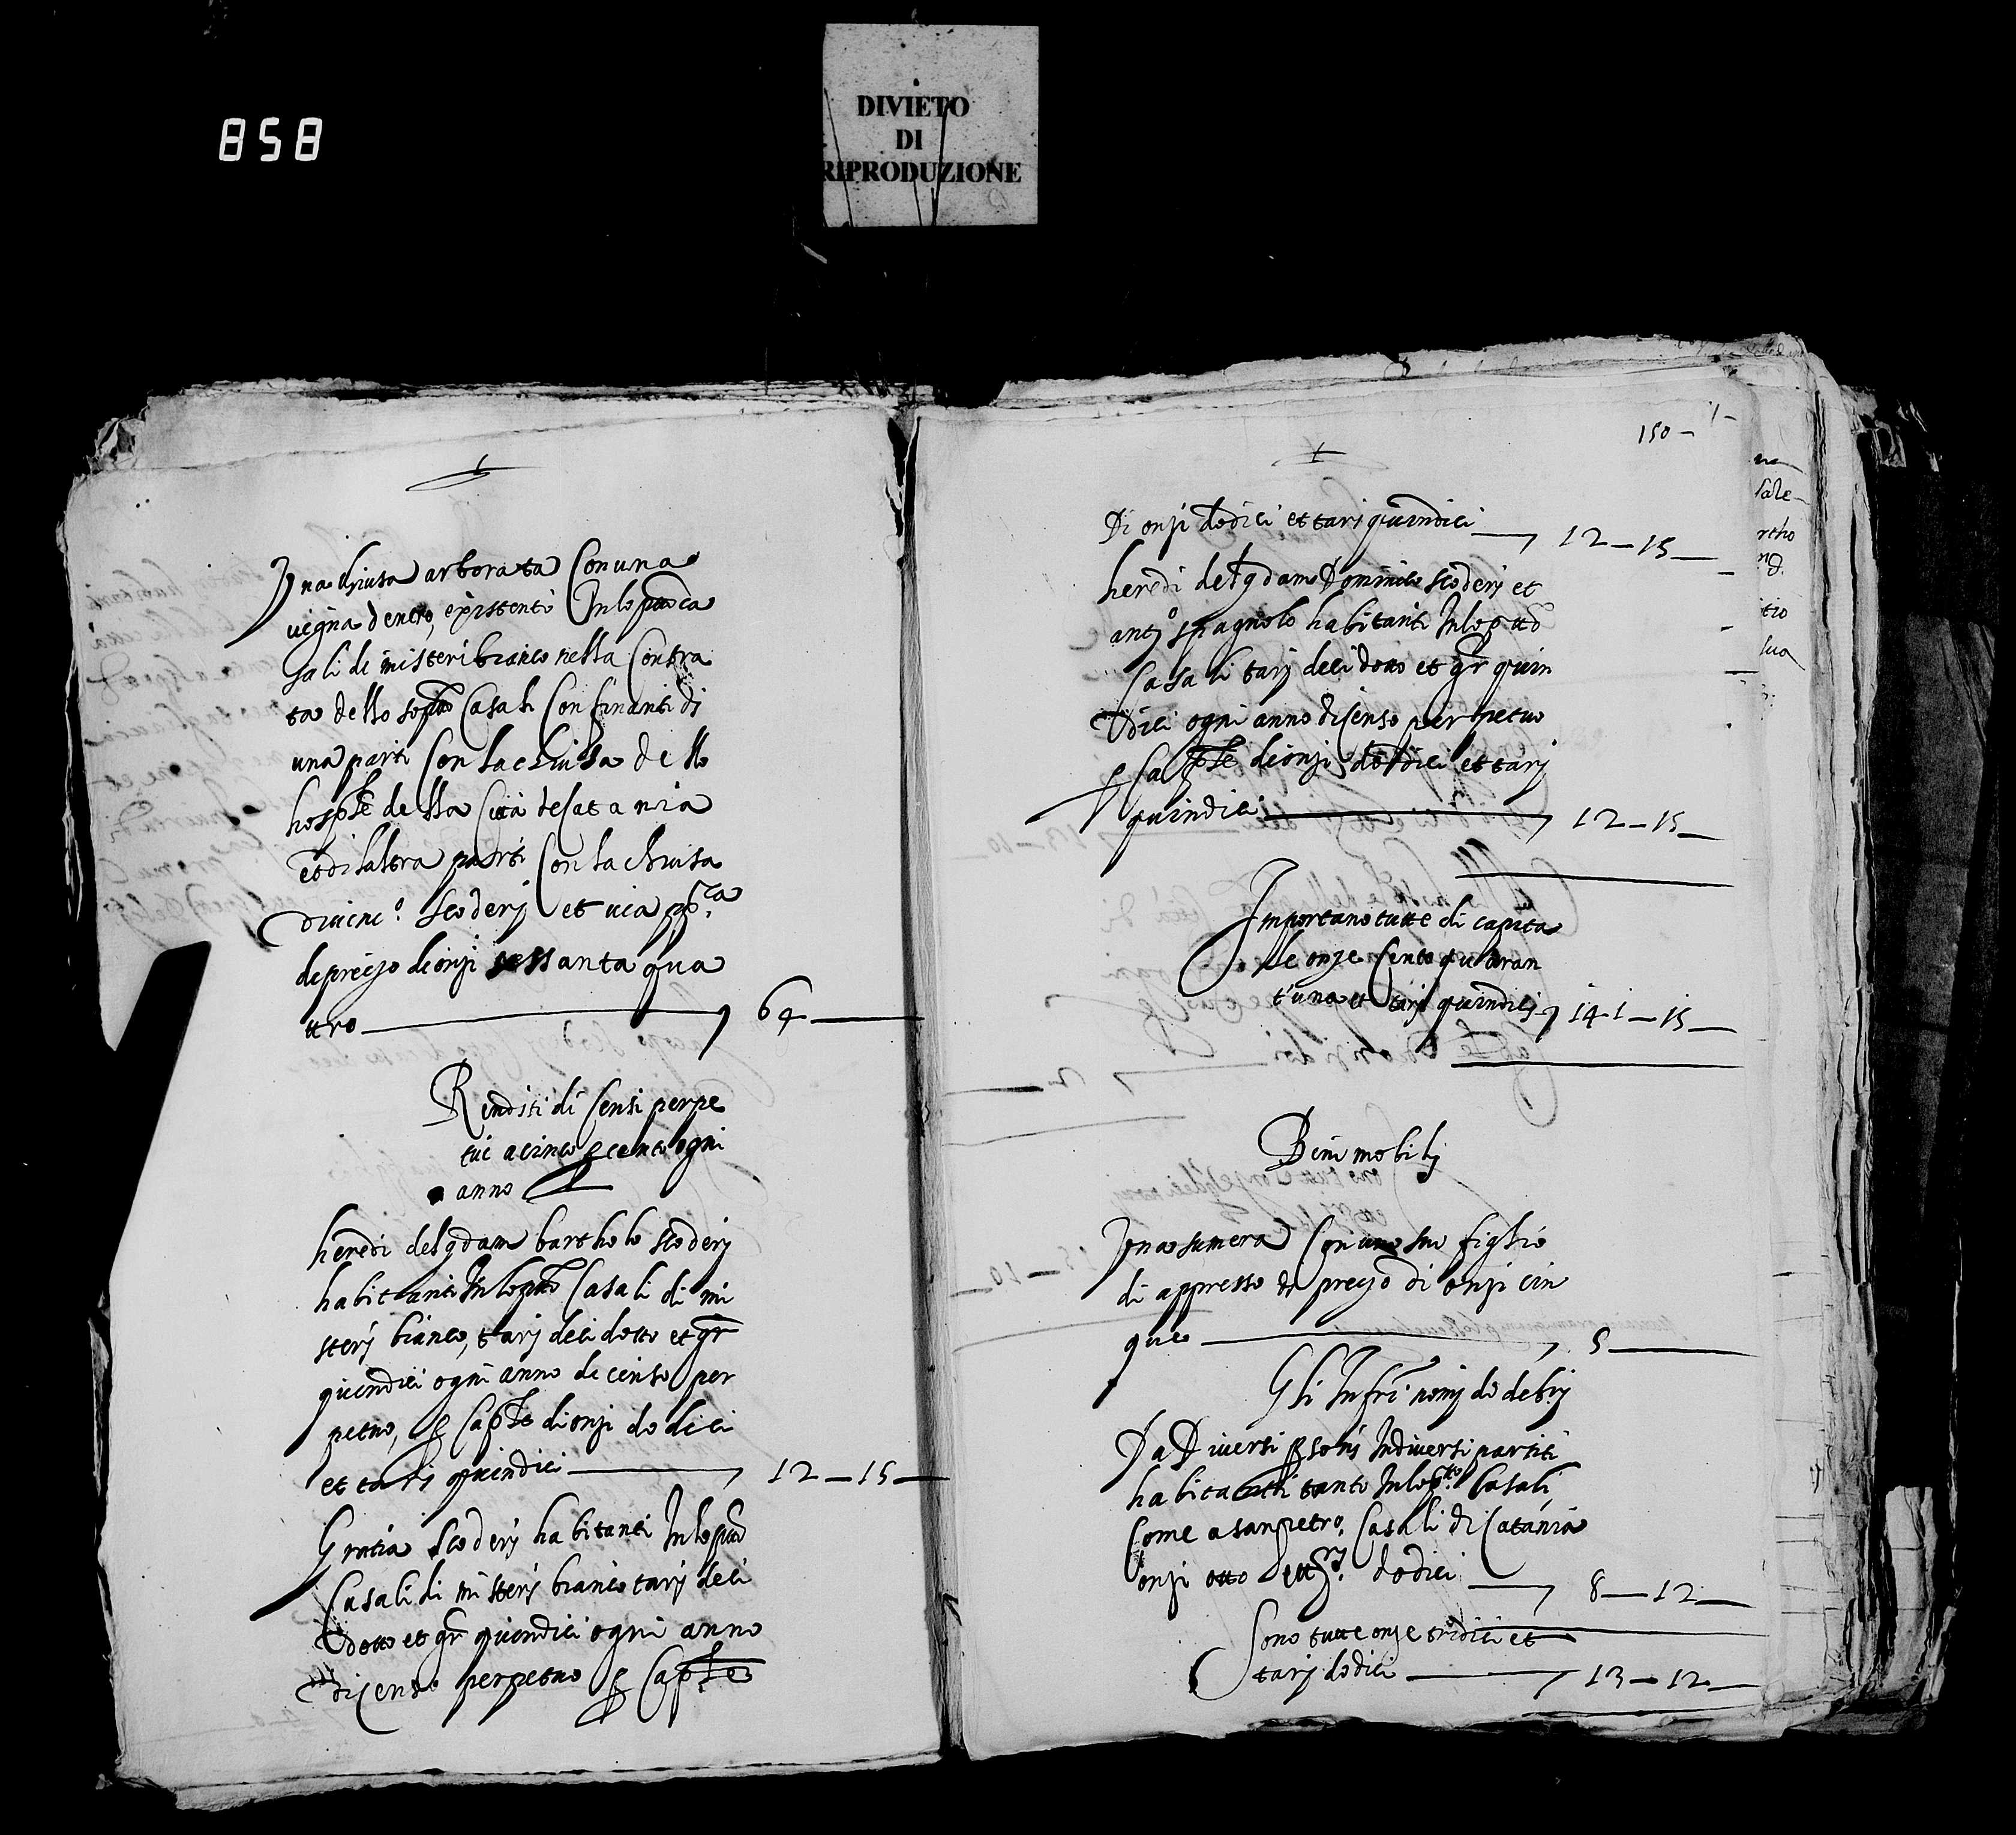 858
DIVIETO
DI
RIPRODUZIONE
Una chiusa arborata Con una
vigna dentro, existenti In lo p.tto Ca
sali di misteri bianco nella Contra
ta dello sop.to Casali Confinanti di
una parti Con la chiusa dello
hosp.le della Cità de Catania
et di laltra parti Con la chiusa
di vinc.o scoderj et via pp.ca
de prezzo di onzi sessanta qua
ttro 64
Renditi di Censi perpe
tui a cinco p cento ogni
anno
heredi del qdam bartholo scoderj
habitanti In lo p.tto Casali di mi
sterj bianco, tarj deci dotto et gr
quindici ogni anno de censo per
petuo, p Cap.le di onzi dodici
et tarj quindici 12 — 15
Gratia scoderj habitanti In lo p.tto
Casali di misterj bianco tarj deci
dotto et gr quindici ogni anno
di censo perpetuo p Cap.le
150
Di onzi dodici et tarj quindici 12 — 15
heredi del qdam Dominico scoderj et
ant.o spagnolo habitanti In lo p.tto
Casali tarj deci dotto et gr quin
dici ogni anno di censo perpetuo
p Cap.le di onzi dodici et tarj
quindici 12 — 15
Importano tutte di capita
le onze Cento quaran
t'una et tarj quindici 141 — 15
Beni mobilj
Una sumera Con uno suo figlio
di appresso di prezzo di onzi cin
que 5
Gli Infr.i nomj di debitj
Da Diversi p.sonj In diversi partiti
habitanti tanto In lo p.tto Casali
Come a san pietro, Casali di Catania
onzi otto et tarj dodici 8 — 12
Sono tutte onze tridici et
tarj dodici 13 — 12